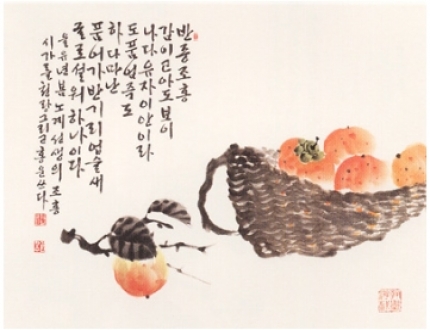 반듕조홍
감이고아도보이
나다유자이안이라
도품엄즉도
하다마난
품어가반기리업슬새
글로설워하나이다
을유년봄노계선생의조홍
시가를 그리고 쓰다